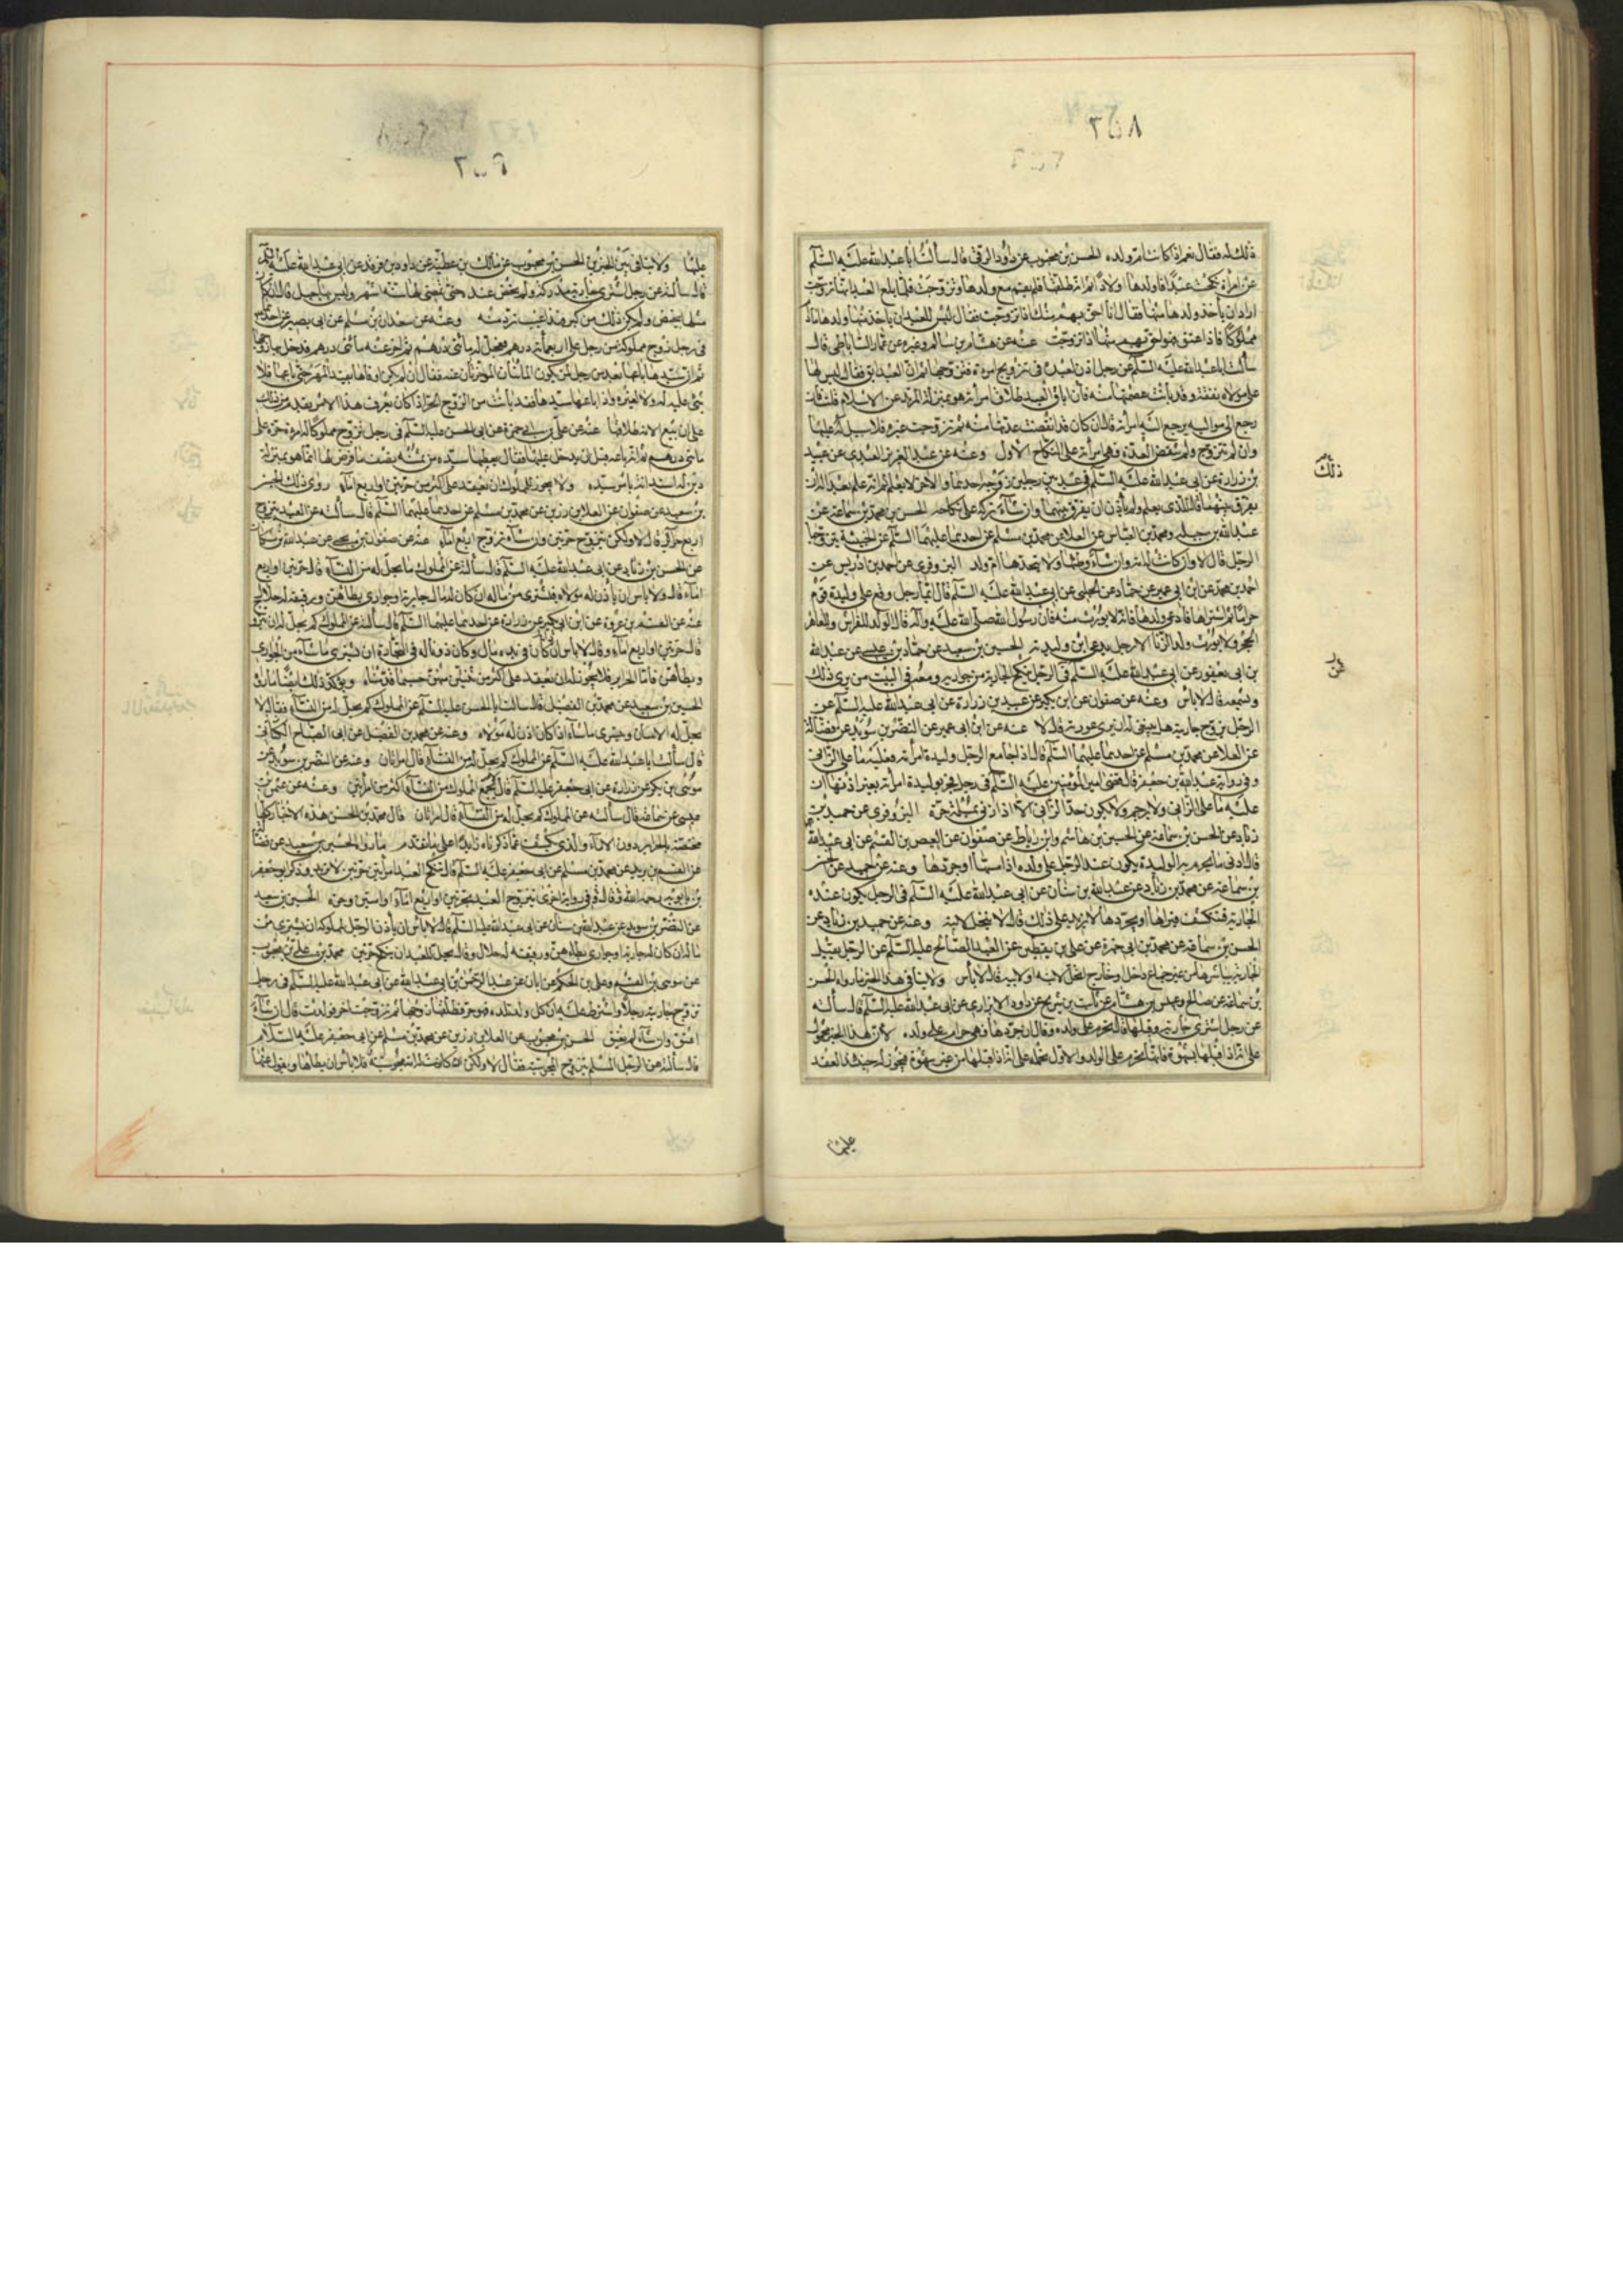 ٣٥٨
ذلك له فقال نعم اذا كانت ام ولده الحسن بن محبوب عن داود الرقى قال سألت ابا عبد الله عليه السلام
عن امرأة نكحت عبدا فاولدها اولادا ثم انه طلقها فلم تقم مع ولدها وتزوجت فلما بلغ العبد انها تزوجت
اراد ان يأخذ ولدها منها فقال انا احق بهم منك اذا تزوجت فقال ليس للعبد ان يأخذ منها ولدها ما دام
مملوكا فاذا اعتق فهو احق بهم منها اذا تزوجت عنه عن هشام بن سالم وغيره عن عمار الساباطى قال
سألت ابا عبد الله عليه السلام عن رجل اذن لعبده فى تزويج امرءة فتزوجها ثم ان العبد ابق فقال ليس لها
على مولاه نفقة وقد بانت عصمتها منه فان اباق العبد طلاق امرأته هو بمنزلة المرتد عن الاسلام قلت فان
رجع الى مواليه ترجع اليه امرأته قال ان كان قد انقضت عدتها منه ثم تزوجت غيره فلا سبيل له عليها
وان لم تتزوج ولم تنقض العدة فهى امرأته على النكاح الاول وعنه عن عبد العزيز العبدى عن عبيد
بن زرارة عن ابى عبد الله عليه السلام فى عبد بين رجلين زوجه احدهما والاخر لا يعلم ثم انه علم بعد اله ان
يفرق بينهما قال للذى يعلم ولم يأذن ان يفرق بينهما وان شاء تركه على نكاحه الحسن بن محمد بن سماعة عن
عبد الله بن جبلة ومحمد بن العباس عن العلا عن محمد بن مسلم عن احدهما عليهما السلام عن الخبيثة يتزوجها
الرجل قال لا وان كانت له امة وان شاء وطئها ولا يتخذها ام ولد البزوفرى عن احمد بن ادريس عن
احمد بن محمد عن ابن ابى عمير عن حماد عن الحلبى عن ابى عبد الله عليه السلام قال ايما رجل وقع على وليدة قوم
حراما ثم اشتراها فادعى ولدها فانه لا يورث منه فان رسول الله صلى الله عليه وآله قال الولد للفراش وللعاهر
الحجر ولا يورث ولد الزنا الا رجل يدعى ابن وليدته الحسين بن سعيد عن حماد بن عيسى عن عبد الله
بن ابى يعفور عن ابى عبد الله عليه السلام فى الرجل ينكح الجارية من جواريه ومعه فى البيت من يرى ذلك
ويسمعه قال لا بأس وعنه عن صفوان عن ابن بكير عن عبيد بن زرارة عن ابى عبد الله عليه السلام عن
الرجل يزوج جاريته هل ينبغى له ان يرى عورته قال لا عنه عن ابن ابى عمير عن النضر بن سويد عن فضالة
عن العلا عن محمد بن مسلم عن احدهما عليهما السلام قال اذا جامع الرجل وليدة امرأته فعليه ما على الزانى
وفى رواية عبد الله بن جعفر قال قضى امير المؤمنين عليه السلام فى رجل فجر بوليدة امرأته بغير اذنها ان
عليه ما على الزانى ولا يرجم ولا يكون حد الزانى الا اذا زنى بمسلمة حرة البزوفرى عن حميد بن
زياد عن الحسن بن سماعة عن الحسين بن هاشم وابن رباط عن صفوان عن العيص بن القسم عن ابى عبد الله
قال ادنى ما يحرم به الوليدة يكون عند الرجل على ولده اذا مسها او جردها وعنه عن حميد عن الحسن
بن سماعة عن محمد بن زياد عن عبد الله بن سنان عن ابى عبد الله عليه السلام فى الرجل يكون عنده
الجارية فتنكشف فيراها او يجردها لا يزيد على ذلك قال لا تحل لابنه وعنه عن حميد بن زياد عن
الحسن بن سماعة عن محمد بن ابى حمزة عن على بن يقطين عن العبد الصالح عليه السلام عن الرجل يقبل
الجارية يباشرها من غير جماع داخل او خارج اتحل لابنه او لابيه قال لا بأس ولا ينافى هذا الخبر ما رواه الحسن
بن سماعة عن صالح وعبيس بن هشام عن ثابت بن شريح عن داود الابزارى عن ابى عبد الله عليه السلام قال سألته
عن رجل اشترى جارية فقبلها قال تحرم على ولده وقال ان جردها فهى حرام على ولده لان هذا الخبر محمول
على انه اذا قبلها بشهوة فانها تحرم على الولد والاول نحمله على انه اذا قبلها من غير شهوة فيجوز له حينئذ العقد
عليها
ذلك
٣٥٩
عليها ولا ينافى بين الخبرين الحسن بن محبوب عن مالك بن عطية عن داود بن فرقد عن ابى عبد الله عليه السلام
قال سألته عن رجل اشترى جارية مدركة ولم تحض عنده حتى مضى لها ستة اشهر وليس بها حبل قال ان كان
مثلها تحيض ولم يكن ذلك من كبر فهذا عيب ترد منه وعنه عن سعدان بن مسلم عن ابى بصير عن احدهما
فى رجل زوج مملوكة من رجل على اربعمأة درهم فعجل له مائتى درهم ثم اخر عنه مائتى درهم فدخل بها زوجها
ثم ان سيدها باعها بعد من رجل لمن يكون المائتان المؤخرتان عنه فقال ان لم يكن اوفاها بقية المهر حتى باعها فلا
شئ عليه له ولا لغيره واذا باعها سيدها فقد بانت من الزوج الحر اذا كان يعرف هذا الامر بقدم من ذلك
على ان بيع الامة طلاقها عنه عن على بن ابى حمزة عن ابى الحسن عليه السلام فى رجل تزوج مملوكا له امرءة حرة على
مائتى درهم ثم انه باعه قبل ان يدخل عليها فقال يعطيها سيده من ثمنه نصف ما فرض لها انما هو بمنزلة
دين له استدانه باذن سيده ولا يجوز للمملوك ان يعقد على اكثر من حرتين او اربع اماء روى ذلك الحسين
بن سعيد عن صفوان عن العلا بن رزين عن محمد بن مسلم عن احدهما عليهما السلام قال سألته عن العبد يتزوج
اربع حرائر قال لا ولكن يتزوج حرتين وان شاء تزوج اربع اماء عنه عن صفوان بن يحيى عن عبد الله بن مسكان
عن الحسن بن زياد عن ابى عبد الله عليه السلام قال سألته عن المملوك ما يحل له من النساء قال حرتين او اربع
اماء قال ولا بأس ان يأذن له مولاه فيشترى من ماله ان كان له مال جارية او جوارى يطأهن ورقيقه له حلال
عنه عن القسم بن عروة عن ابن بكير عن زرارة عن احدهما عليهما السلام قال سألته عن المملوك كم يحل له ان يتزوج
قال حرتين او اربع اماء وقال لا بأس ان كان فى يده مال وكان ذوناله فى التجارة ان يشترى ما شاء من الجوارى
ويطأهن فاما الحراير فلا يجوز له ان يعقد على اكثر من ثنتين منهن حسبما قدمناه ويؤكد ذلك ايضا ما رواه
الحسين بن سعيد عن محمد بن الفضيل قال سألت ابا الحسن عليه السلام عن المملوك كم يحل له من النساء فقال لا
يحل له الا ثنتان ويتسرى ما شاء اذا كان اذن له مولاه وعنه عن محمد بن الفضيل عن ابى الصباح الكنانى
قال سألت ابا عبد الله عليه السلام عن المملوك كم يحل له من النساء قال امرأتان وعنه عن النضر بن سويد عن
موسى بن بكر عن زرارة عن ابى جعفر عليه السلام قال لا يجمع المملوك من النساء اكثر من امرأتين وعنه عن عثمن بن
عيسى عن سماعة قال سألته عن المملوك كم يحل له من النساء قال امرأتان قال محمد بن الحسن هذه الاخبار كلها
مختصة بالحراير دون الاماء والذى يكشف عما ذكرناه زايدا على ما تقدم ما رواه الحسين بن سعيد عن فضالة
عن القسم بن بريد عن محمد بن مسلم عن ابى جعفر عليه السلام قال ينكح العبد امرأتين حرتين لا يزيد وذكر ابو جعفر
بن بابويه رحمه الله قال وفى رواية اخرى يتزوج العبد بحرتين او اربع اماء او امتين وحرة الحسين بن سعيد
عن النضر بن سويد عن عبد الله بن سنان عن ابى عبد الله عليه السلام قال لا بأس ان يأذن الرجل لمملوكه ان يشترى من
ماله ان كان له جارية او جوارى يطأهن ورقيقه له حلال وقال يحل للعبد ان ينكح حرتين محمد بن على بن محبوب
عن موسى بن القسم وعلى بن الحكم عن ابان عن عبد الرحمن بن ابى عبد الله عن ابى عبد الله عليه السلام فى رجل
تزوج جاريته رجلا واشترط عليه ان كل ولد تلده فهو حر فطلقها زوجها ثم تزوجت اخر فولدت قال ان شاء
اعتق وان شاء لم يعتق الحسن بن محبوب عن العلا بن رزين عن محمد بن مسلم عن ابى جعفر عليه السلام
قال سألته عن الرجل المسلم يتزوج المجوسية فقال لا ولكن ان كانت له امة مجوسية فلا بأس ان يطأها ويعزل عنها